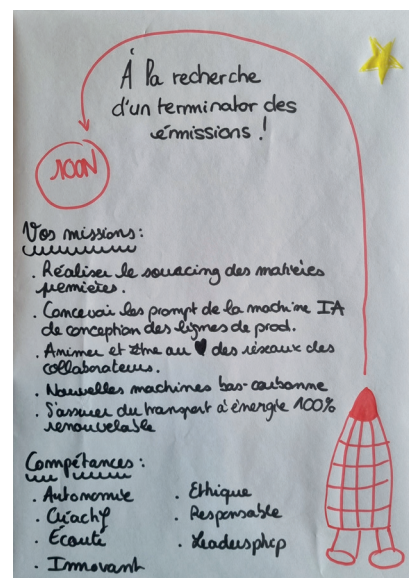 À la recherche
d'un terminator des
émissions !
100N
Vos missions :
. Réaliser le sourcing des matières
premières.
. Concevoir les prompt de la machine IA
de conception des lignes de prod.
. Animer et être au ♥ des réseaux des
collaborateurs.
. Nouvelles machines bas-carbonne
. S'assurer du transport à énergie 100%
renouvelable
Compétences :
. Autonomie
. Créatif
. Écoute
. Innovant
. Ethique
. Responsable
. Leadership